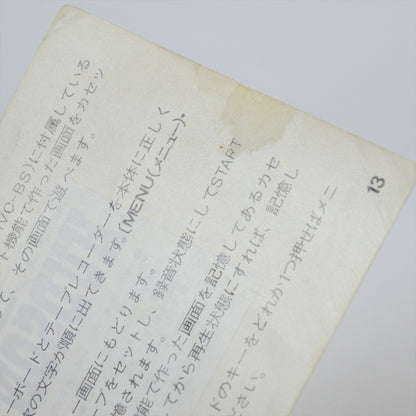 VC-BS)に付属している
ト機能で作った画面をカセッ
て、その画面で遊べます。
ーボードとテープレコーダーを本体に正しく
の文字が順に出てきます。〔MENU(メニュー)・
ー画面にもどります。
プをセットし、録音状態にしてSTART
憶されます。
能で作った画面を記憶してあるカセ
てから再生状態にすれば、記憶し
ドのキーをどれか1つ押せばメニ
さい。
13